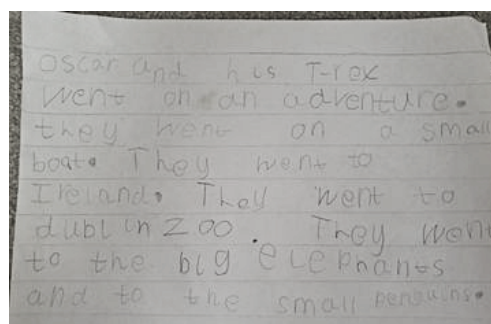 oscar and his T-rex
went on an adventure.
they went on a small
boat. They went to
Ireland. They went to
dublin zoo. They went
to the big elephants
and to the small penguins.